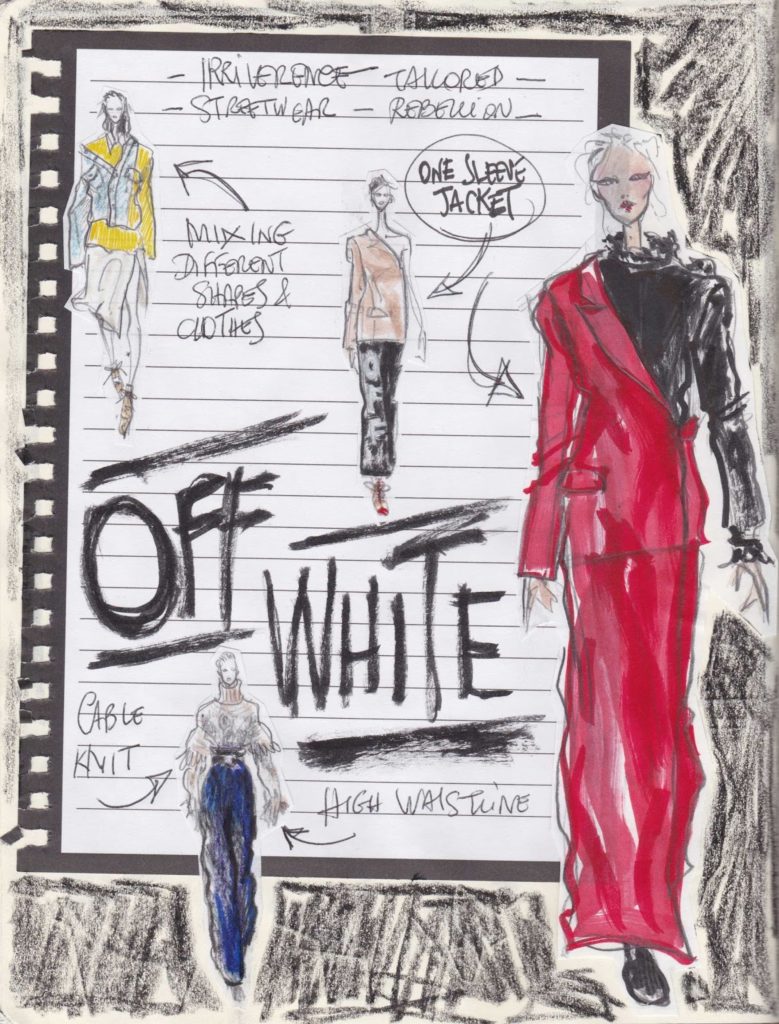 - IRRIVERENCE - TAILORED -
- STREETWEAR - REBELLION -
ONE SLEEVE
JACKET
MIXING
DIFFERENT
SHAPES &
CLOTHES
OFF
OFF
WHITE
CABLE
KNIT
HIGH WAISTLINE